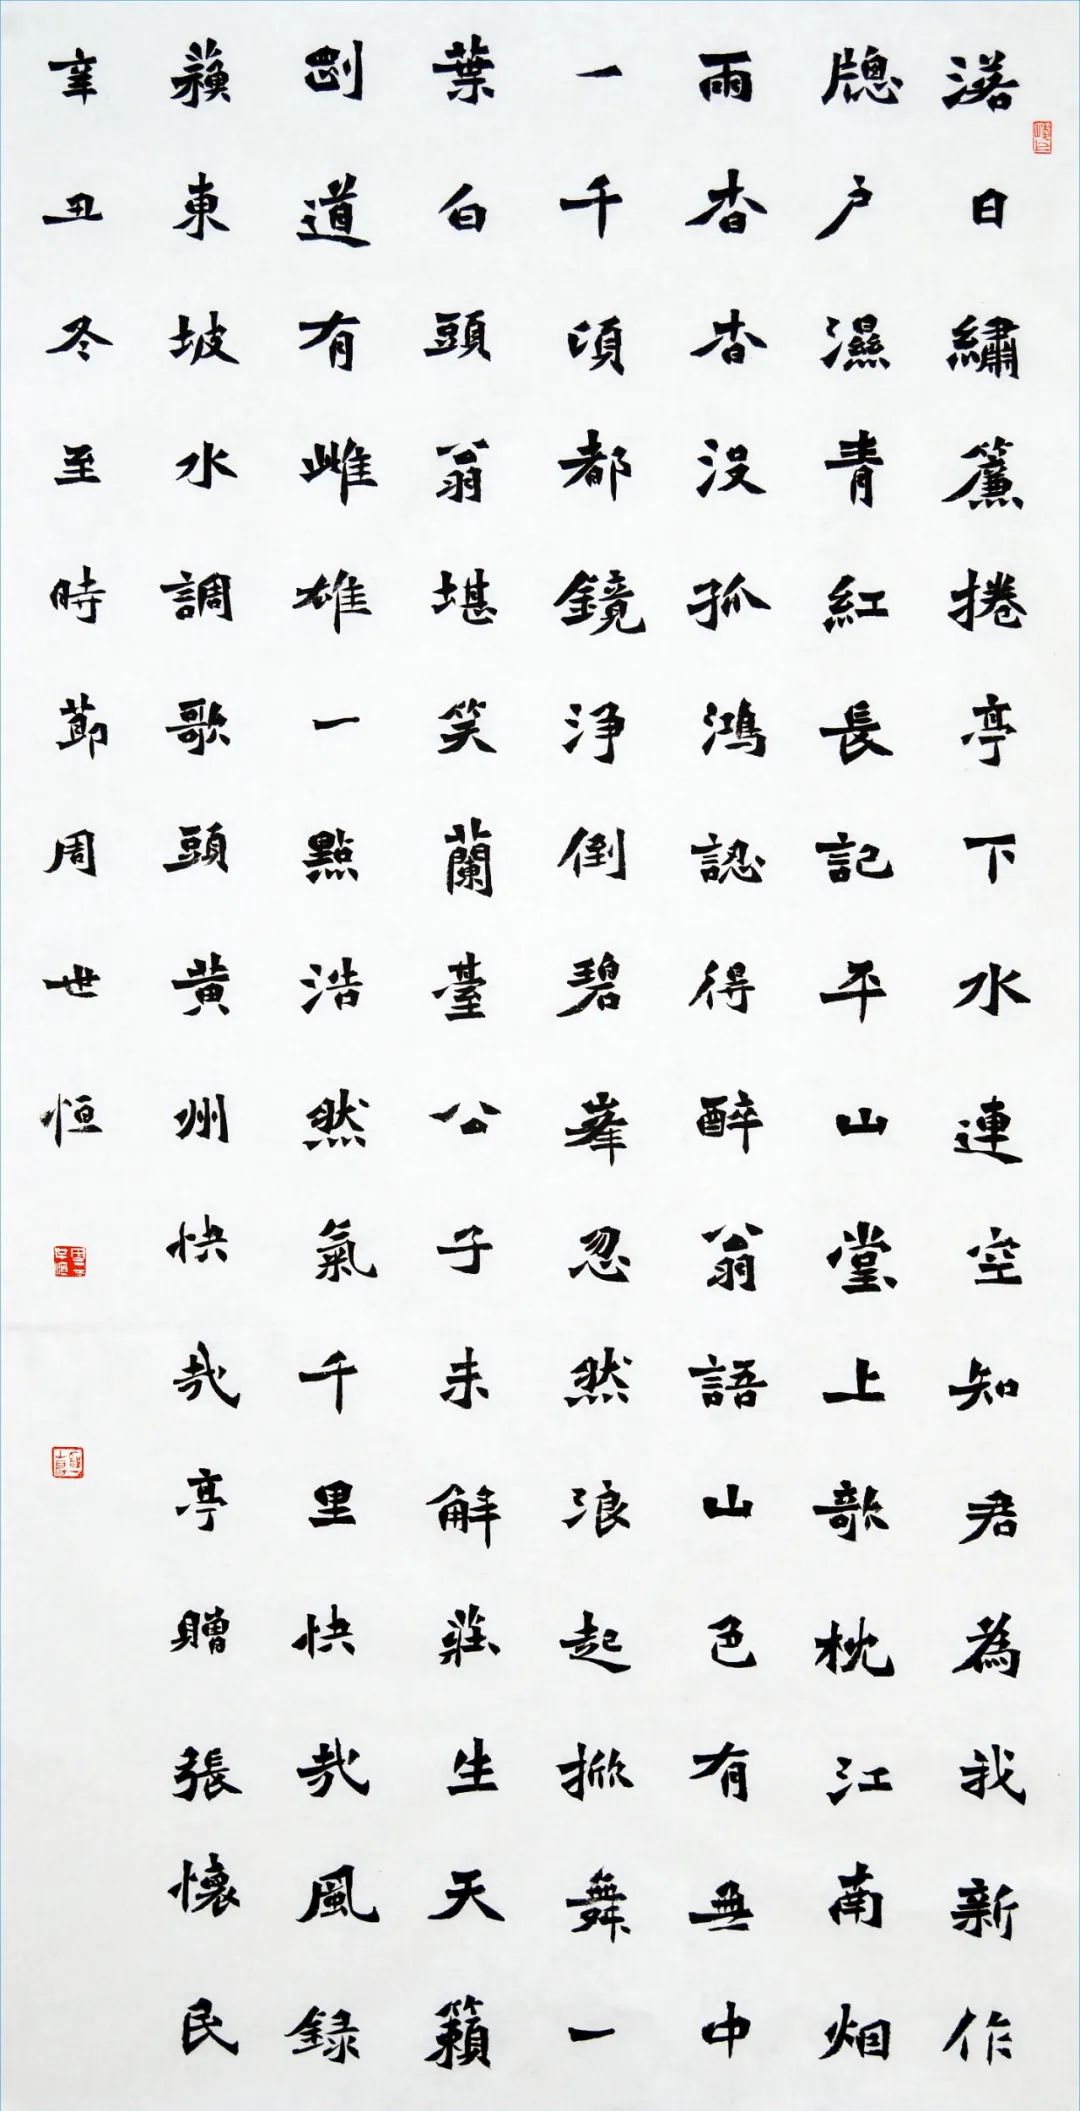 落日繡簾捲亭下水連空知君為我新作
牕戶濕青紅長記平山堂上欹枕江南烟
雨杳杳沒孤鴻認得醉翁語山色有無中
一千頃都鏡淨倒碧峯忽然浪起掀舞一
葉白頭翁堪笑蘭臺公子未解莊生天籟
剛道有雌雄一點浩然氣千里快哉風錄
蘓東坡水調歌頭黄州快哉亭贈張懷民
辛丑冬至時節周世恒